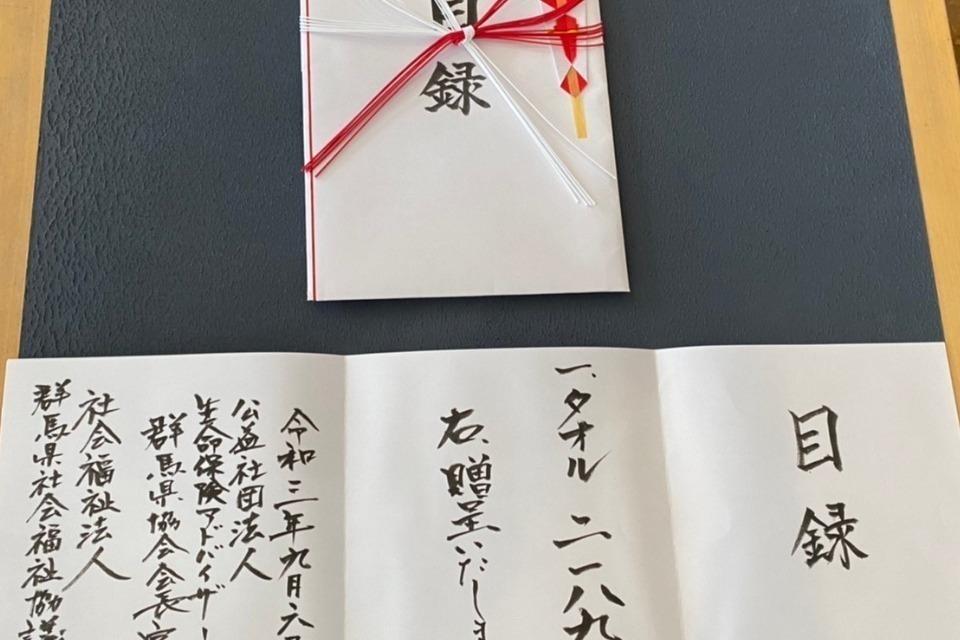 目録
目録
一、タオル 二一八九
右、贈呈いたしま
令和三年九月六
公益社団法人
生命保険アドバイザー
群馬県協会会長
社会福祉法人
群馬県社会福祉協議